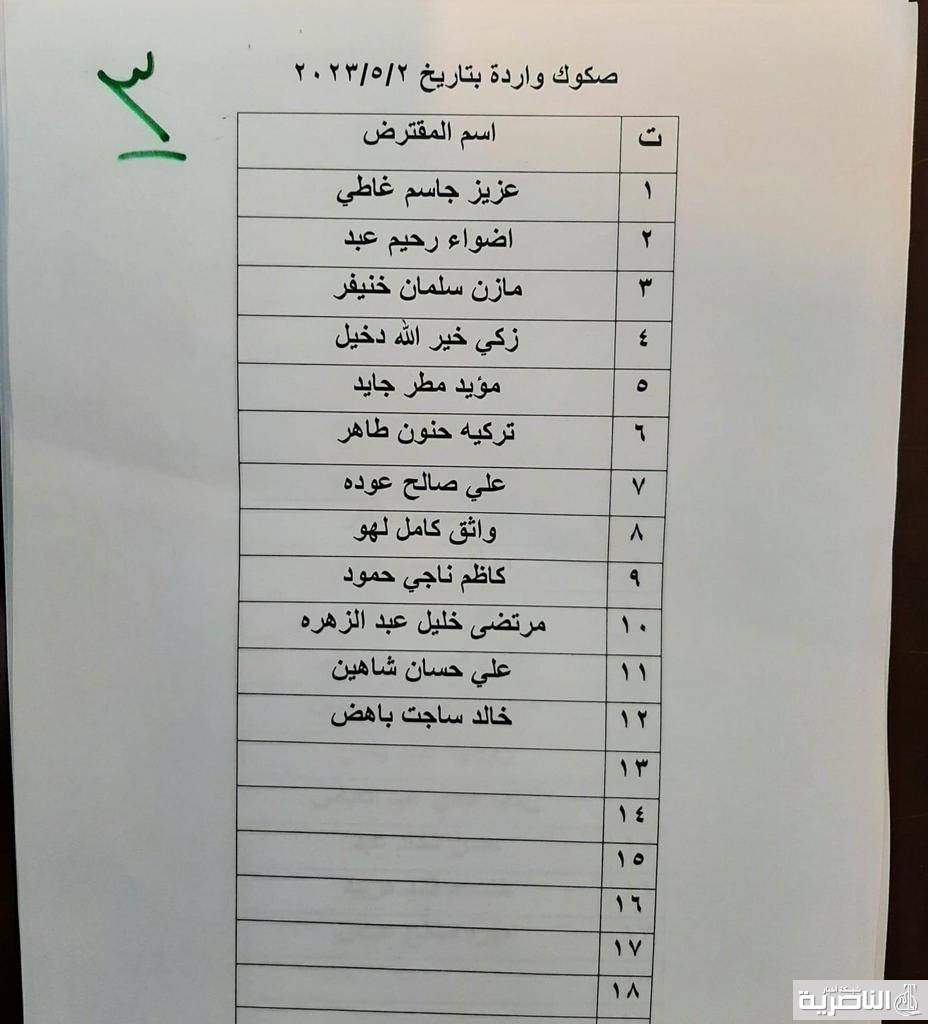 ٣
صكوك واردة بتاريخ ٢٠٢٣/٥/٢
ت اسم المقترض
١ عزيز جاسم غاطي
٢ اضواء رحيم عبد
٣ مازن سلمان خنيفر
٤ زكي خير الله دخيل
٥ مؤيد مطر جايد
٦ تركيه حنون طاهر
٧ علي صالح عوده
٨ واثق كامل لهو
٩ كاظم ناجي حمود
١٠ مرتضى خليل عبد الزهره
١١ علي حسان شاهين
١٢ خالد ساجت باهض
١٣
١٤
١٥
١٦
١٧
١٨
شبكة أخبار
الناصرية